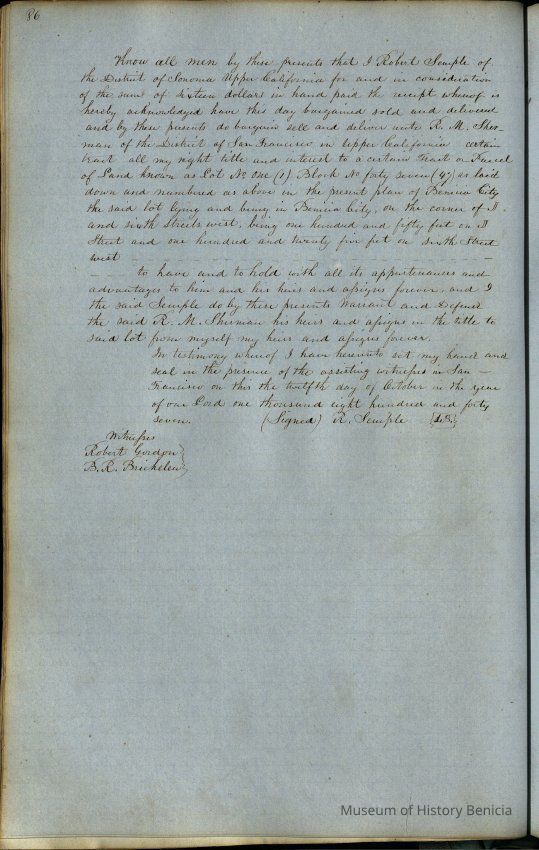 86
Know all men by these presents that I Robert Semple of
the District of Sonoma Upper California for and in consideration
of the sum of sixteen dollars in hand paid the receipt whereof is
hereby acknowledged have this day bargained sold and delivered
and by these presents do bargain sell and deliver unto R. M. Sher-
man of the District of San Francisco in Upper California certain
tract all my right title and interest to a certain Tract or Parcel
of Land known as Lot No one (1) Block No forty seven (47) as laid
down and numbered as above in the present plan of Benicia City
the said lot lying and being in Benicia City, on the corner of I
and sixth streets west, being one hundred and fifty feet on I
Street and one hundred and twenty five feet on Sixth Street
west
to have and to hold with all its appurtenances and
advantages to him and his heirs and assigns forever, and I
the said Semple do by these presents Warrant and Defend
the said R. M. Sherman his heirs and assigns in the title to
said lot from myself my heirs and assigns forever.
In testimony whereof I have hereunto set my hand and
seal in the presence of the assisting witnesses in San
Francisco on this the twelfth day of October in the year
of our Lord one thousand eight hundred and forty
seven. (Signed) R. Semple {L.S.}
Witnesses
Robert Gordon
B. R.
Museum of History Benicia